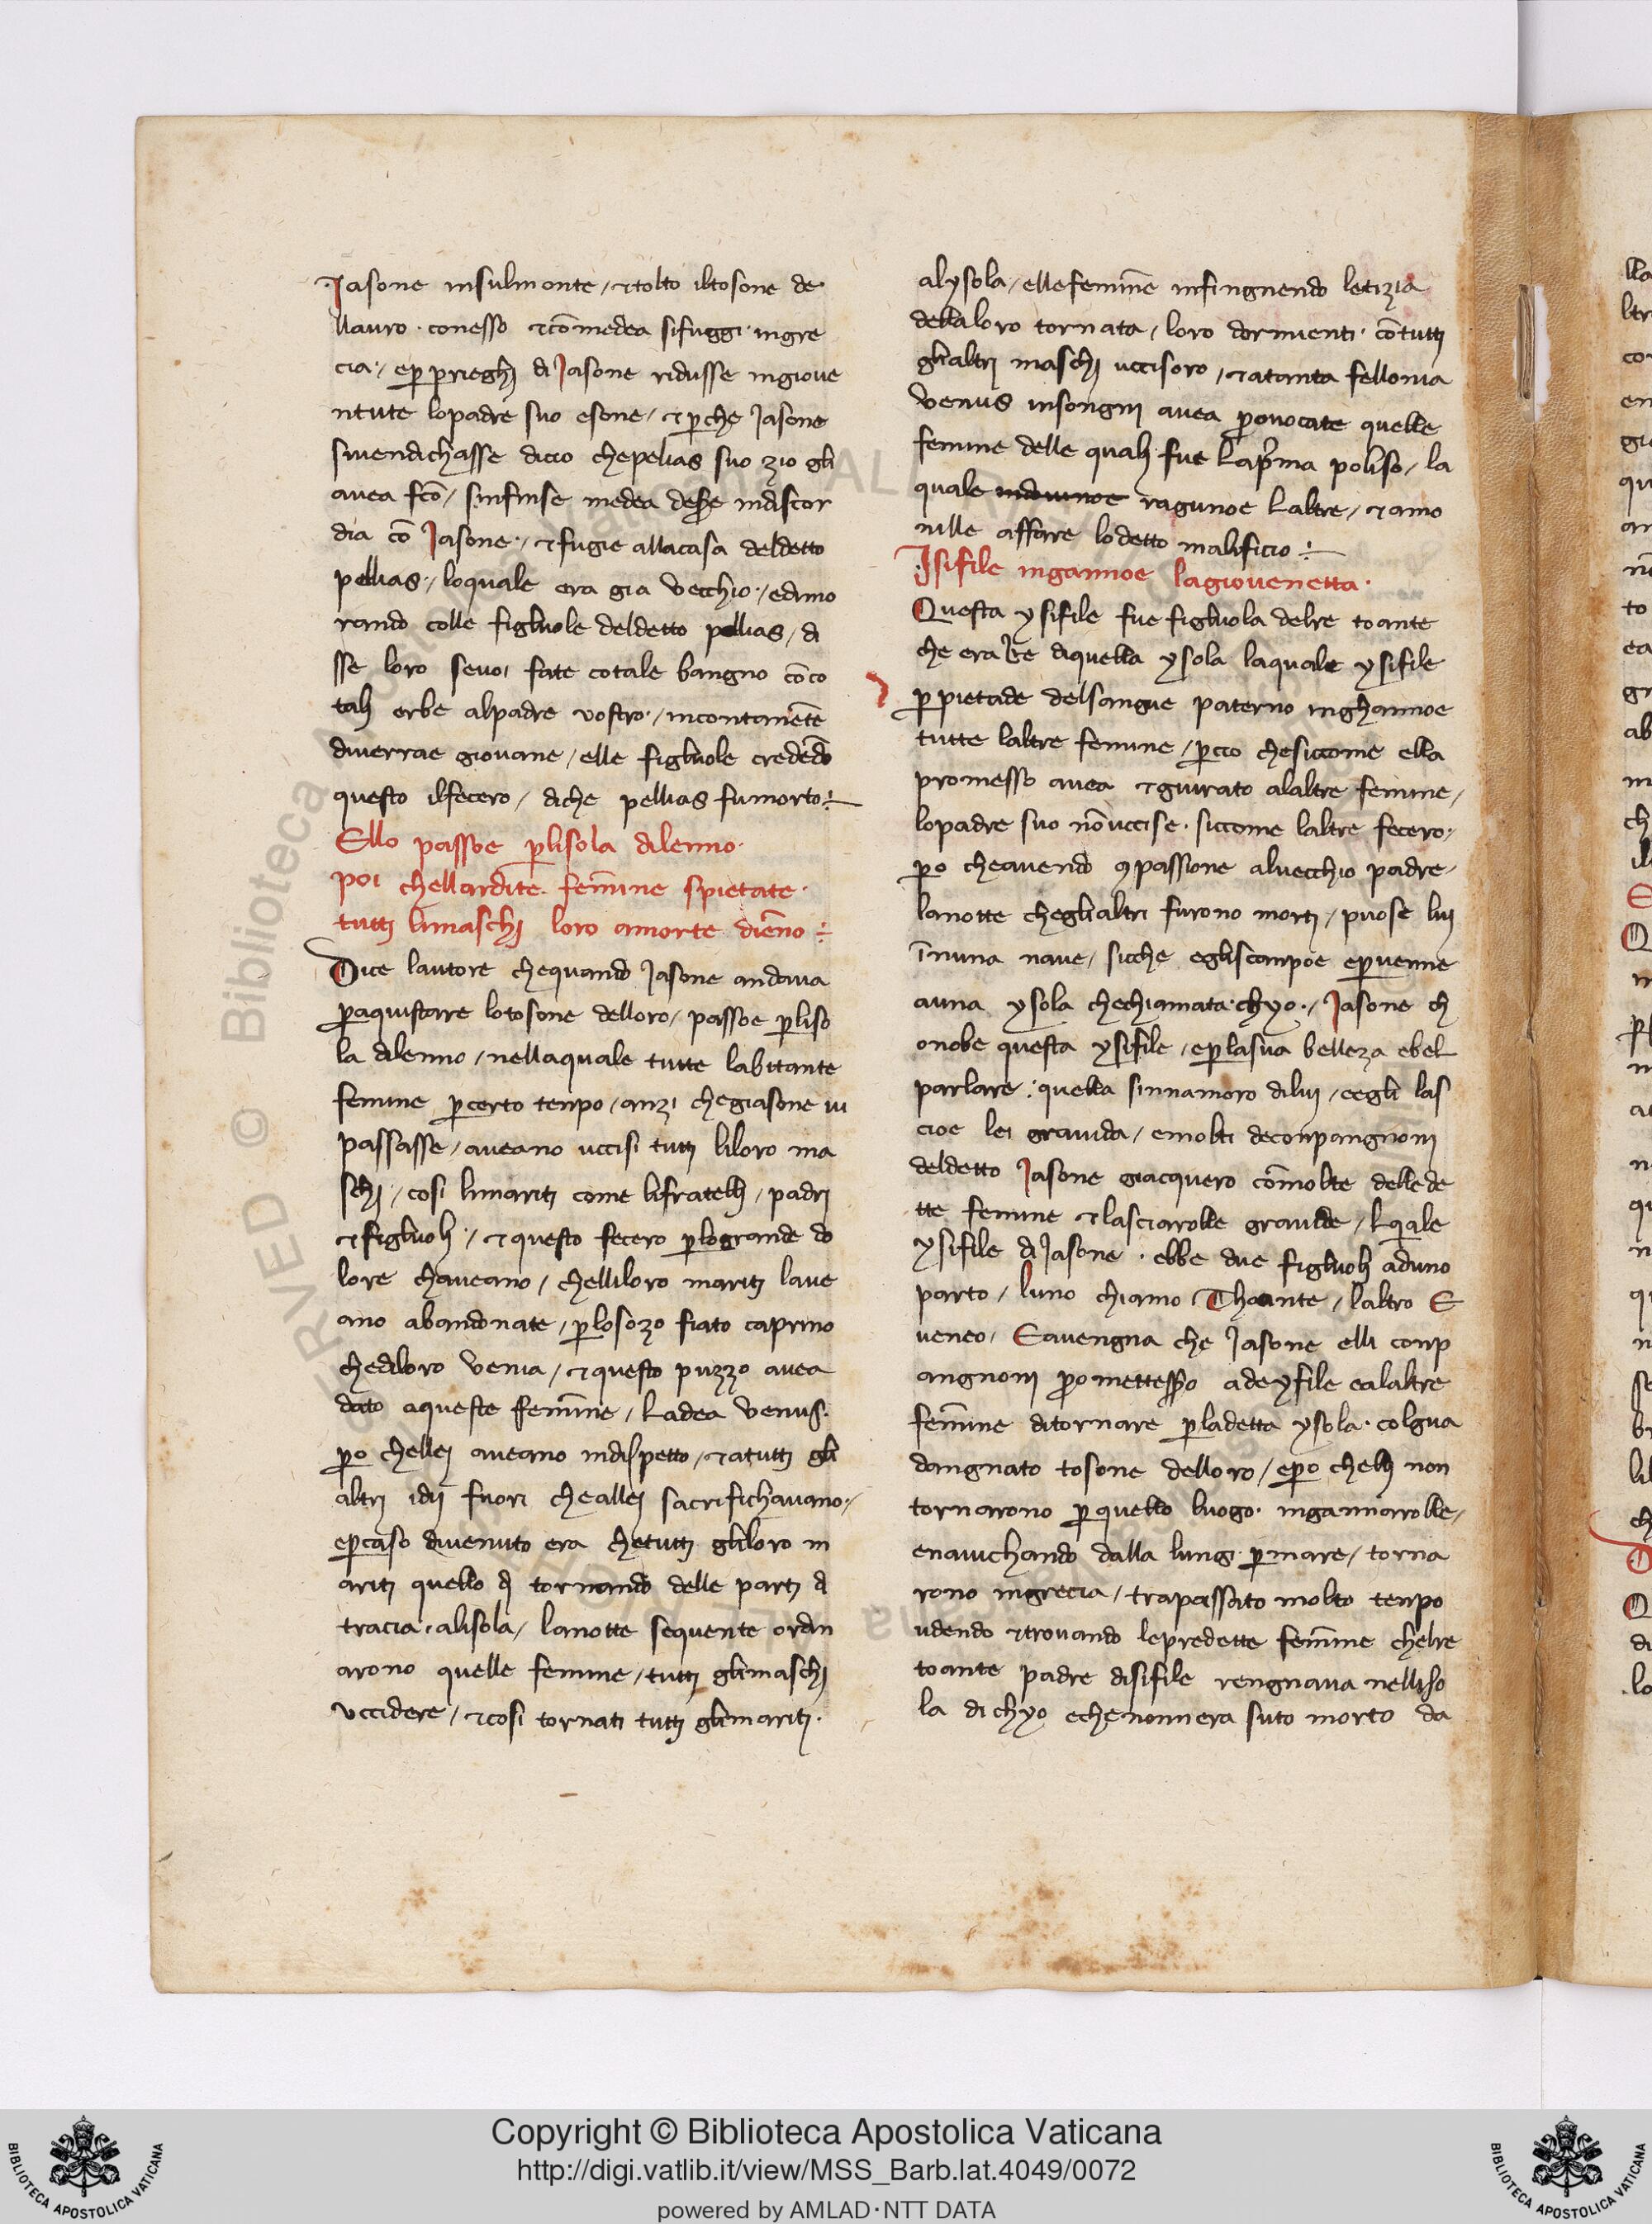 Jasone insulmonte / ⁊tolto iltosone de
llauro · conesso ⁊cōmedea sifuggi · ingre
cia · / eꝑ prieghi di Jasone ridusse ingioue
ntute lopadre suo esone / ⁊ ꝑche Jasone
siuendichasse dicio chepelias suo zio gli
auea fcō / sinfinse medea deſſe indiscor
dia cō Jasone · / ⁊ fugie allacasa deldetto
pellias · / loquale era gia vecchio · / edimo
rando colle figliuole deldetto pellias / di
sse loro seuoi fate cotale bangno cōco
tali erbe alpadre vostro · / incontanēte
diuerrae giouane / elle figliuole credēdo
questo ilfecero / diche pellias fumorto ÷
Ello passoe ꝑlisola dilenno ·
poi chellardite · femīne spietate ·
tutti limaschi loro amorte diēno ÷
Dice lautore chequando Jasone andaua
ꝑaquistare lotosone delloro / passoe ꝑliso
la dilenno / nellaquale tutte labitante
femine ꝑcerto tenpo / anzi chegiasone iui
passasse / aueano uccisi tutti liloro ma
schi · / cosi limariti come lifratelli / padri
⁊ figliuoli · / ⁊ questo fecero ꝑlogrande do
lore chaueano / chelliloro mariti laue
ano abandonate / ꝑlosozo fiato caprino
chediloro venia / ⁊ questo puzzo auea
dato aqueste femīne / Ladea venus ·
ꝑo chellei aueano indispetto / ⁊ atutti gli
altri idij fuori cheallei sacrifichauano · /
eꝑcaso diuenuto era chetutti gliloro m
ariti quello di tornando delle parti di
tracia · alisola / lanotte sequente ordin
arono quelle femine / tutti glimaschi
vccidere / ⁊ cosi tornati tutti glimariti ·
alysola / ellefemīne infingnendo letizia
dellaloro tornata / loro dormienti · cōtutti
glialtri maschi uccisoro / ⁊ atanta fellonia
venus insongni auea ꝓuocate quelle
femine delle quali fue Lapͥma poliso / la
quale ragunoe Laltre / ⁊ amo
nille affare lodetto malificio ÷
Isifile ingannoe lagiouenetta ·
Questa ysifile fue figliuola delre toante
che era Re diquella ysola laquale ysifile
ꝑ pietade delsangue paterno inghannoe
tutte laltre femine / ꝑcio chesiccome ella
promesso auea ⁊ giurato alaltre femine /
lopadre suo nōuccise · siccome laltre fecero /
ꝑo cheauendo ꝯpassione aluecchio padre /
lanotte cheglialtri furono morti / puose lui
īnuna naue / sicche egliscanpoe eꝑuenne
auna ysola chechiamata chyo · / Jasone ch
onobe questa ysifile / eꝑlasua belleza ebel
parlare : quella sinnamoro dilui / eegli las
cioe lei grauida / emolti deconpangnoni
deldetto Jasone giacquero cōmolte dellede
tte femine ⁊ lasciarolle grauide / Lqale
ysifile di Jasone · ebbe due figliuoli aduno
parto / luno chiamo Thoante / laltro E
ueneo / Eauengna che Jasone elli conp
angnoni ꝓmettesſo adeyfile ealaltre
femīne ditornare ꝑladetta ysola · colgua
dangnato tosone delloro / eꝑo chelli non
tornarono ꝑ quello luogo · ingannarolle /
enauichando dalla lungi ꝑmare / torna
rono ingrecia / trapassato molto tenpo
udendo ⁊trouando lepredette femīne chelre
toante padre disifile rengnaua nelliso
la di chyo echenonnera suto morto da
Copyright © Biblioteca Apostolica Vaticana
http://digi.vatlib.it/view/MSS_Barb.lat.4049/0072
powered by AMLAD·NTT DATA
BIBLIOTECA APOSTOLICA VATICANA
BIBLIOTECA APOSTOLICA VATICANA